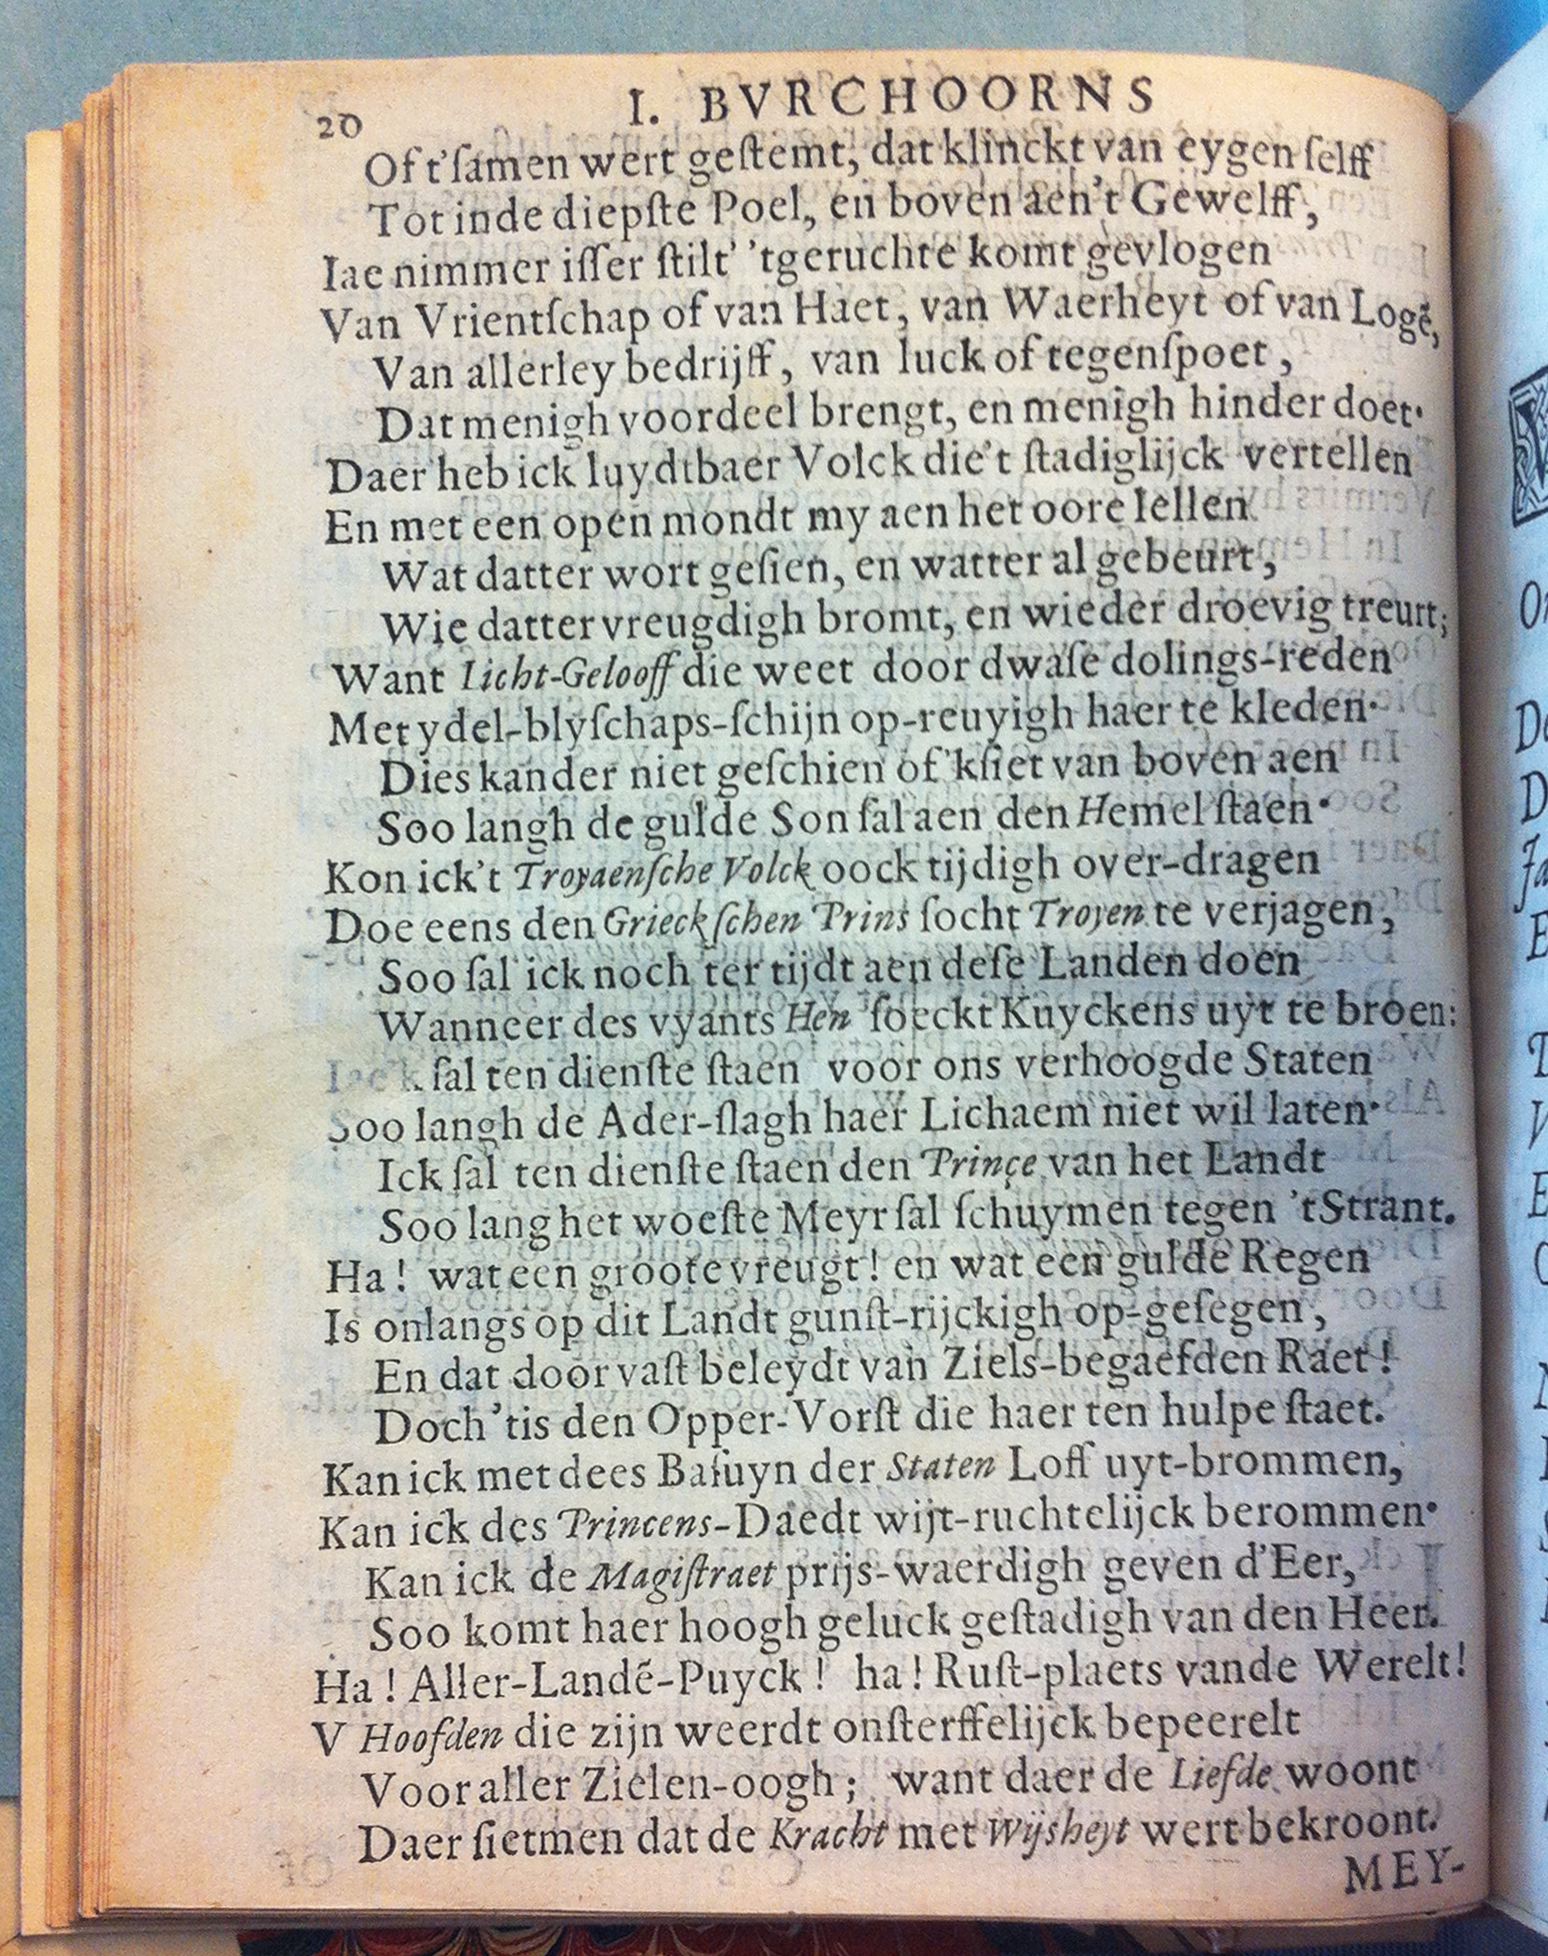 20 I. BVRCHOORNS
Of t'ſamen wert geſtemt, dat klinckt van eygen ſelff
Tot inde diepſte Poel, en boven aen't Gewelff,
Iae nimmer iſſer ſtilt' 'tgeruchte komt gevlogen
Van Vrientſchap of van Haet, van Waerheyt of van Logē,
Van allerley bedrijff, van luck of tegenſpoet,
Dat menigh voordeel brengt, en menigh hinder doet.
Daer heb ick luydtbaer Volck die't ſtadiglijck vertellen
En met een open mondt my aen het oore lellen
Wat datter wort geſien, en watter al gebeurt,
Wie datter vreugdigh bromt, en wieder droevig treurt;
Want Licht-Gelooff die weet door dwaſe dolings-reden
Met ydel-blyſchaps-ſchijn op-reuyigh haer te kleden.
Dies kander niet geſchien of 'kſiet van boven aen
Soo langh de gulde Son ſal aen den Hemel ſtaen.
Kon ick't Troyaenſche Volck oock tijdigh over-dragen
Doe eens den Grieckſchen Prins ſocht Troyen te verjagen,
Soo ſal ick noch ter tijdt aen deſe Landen doen
Wanneer des vyants Hen ſoeckt Kuyckens uyt te broen:
Iae'k ſal ten dienſte ſtaen voor ons verhoogde Staten
Soo langh de Ader-ſlagh haer Lichaem niet wil laten.
Ick ſal ten dienſte ſtaen den Prinçe van het Landt
Soo lang het woeſte Meyr ſal ſchuymen tegen 'tStrant.
Ha! wat een groote vreugt! en wat een gulde Regen
Is onlangs op dit Landt gunſt-rijckigh op-geſegen,
En dat door vaſt beleydt van Ziels-begaefden Raet!
Doch 'tis den Opper-Vorſt die haer ten hulpe ſtaet.
Kan ick met dees Baſuyn der Staten Loff uyt-brommen,
Kan ick des Princens-Daedt wijt-ruchtelijck berommen.
Kan ick de Magiſtraet prijs-waerdigh geven d'Eer,
Soo komt haer hoogh geluck geſtadigh van den Heer.
Ha! Aller-Landē-Puyck! ha! Ruſt-plaets vande Werelt!
V Hoofden die zijn weerdt onſterffelijck bepeerelt
Voor aller Zielen-oogh; want daer de Liefde woont
Daer ſietmen dat de Kracht met Wijsheyt wert bekroont.
MEY-